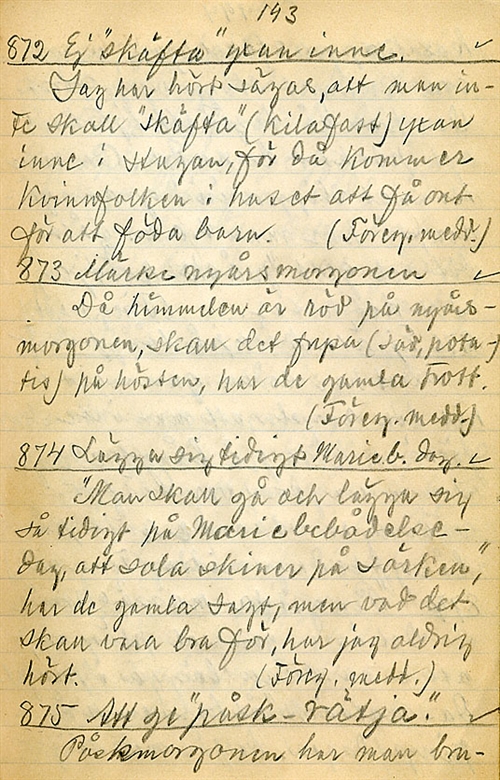 143
872 Ej "skäfta" yxan inne.
Jag har hört sägas, att man in-
te skall "skäfta" (kila fast) yxan
inne i stugan, för då kommer
kvinnfolken i huset att få ont
för att föda barn. (Föreg. medd.)
873 Märke nyårsmorgonen
Då himmelen är röd på nyårs-
morgonen, skall det frysa (säd, pota-
tis) på hösten, har de gamla trott.
(Föreg. medd.)
874 Lägga sig tidigt Marie b. dag.
"Man skall gå och lägga sig
så tidigt på Marie bebådelse-
dag, att sola skiner på särken",
har de gamla sagt, men vad det
skall vara bra för, har jag aldrig
hört. (Föreg. medd.)
875 Att ge "påsk-rätja".
Påskmorgonen har man bru-